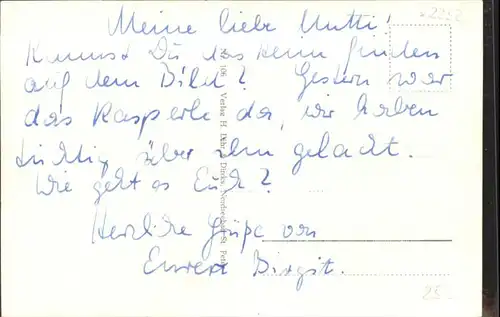 Meine liebe Mutti!
Kannst Du das Heim finden
auf dem Bild? Gestern war
das Kasperle da, wir haben
tüchtig über ihn gelacht.
Wie geht es Euch?
Herzliche Grüße von
Eurer Birgit.
Verlag H.
Nordseebad St. Peter